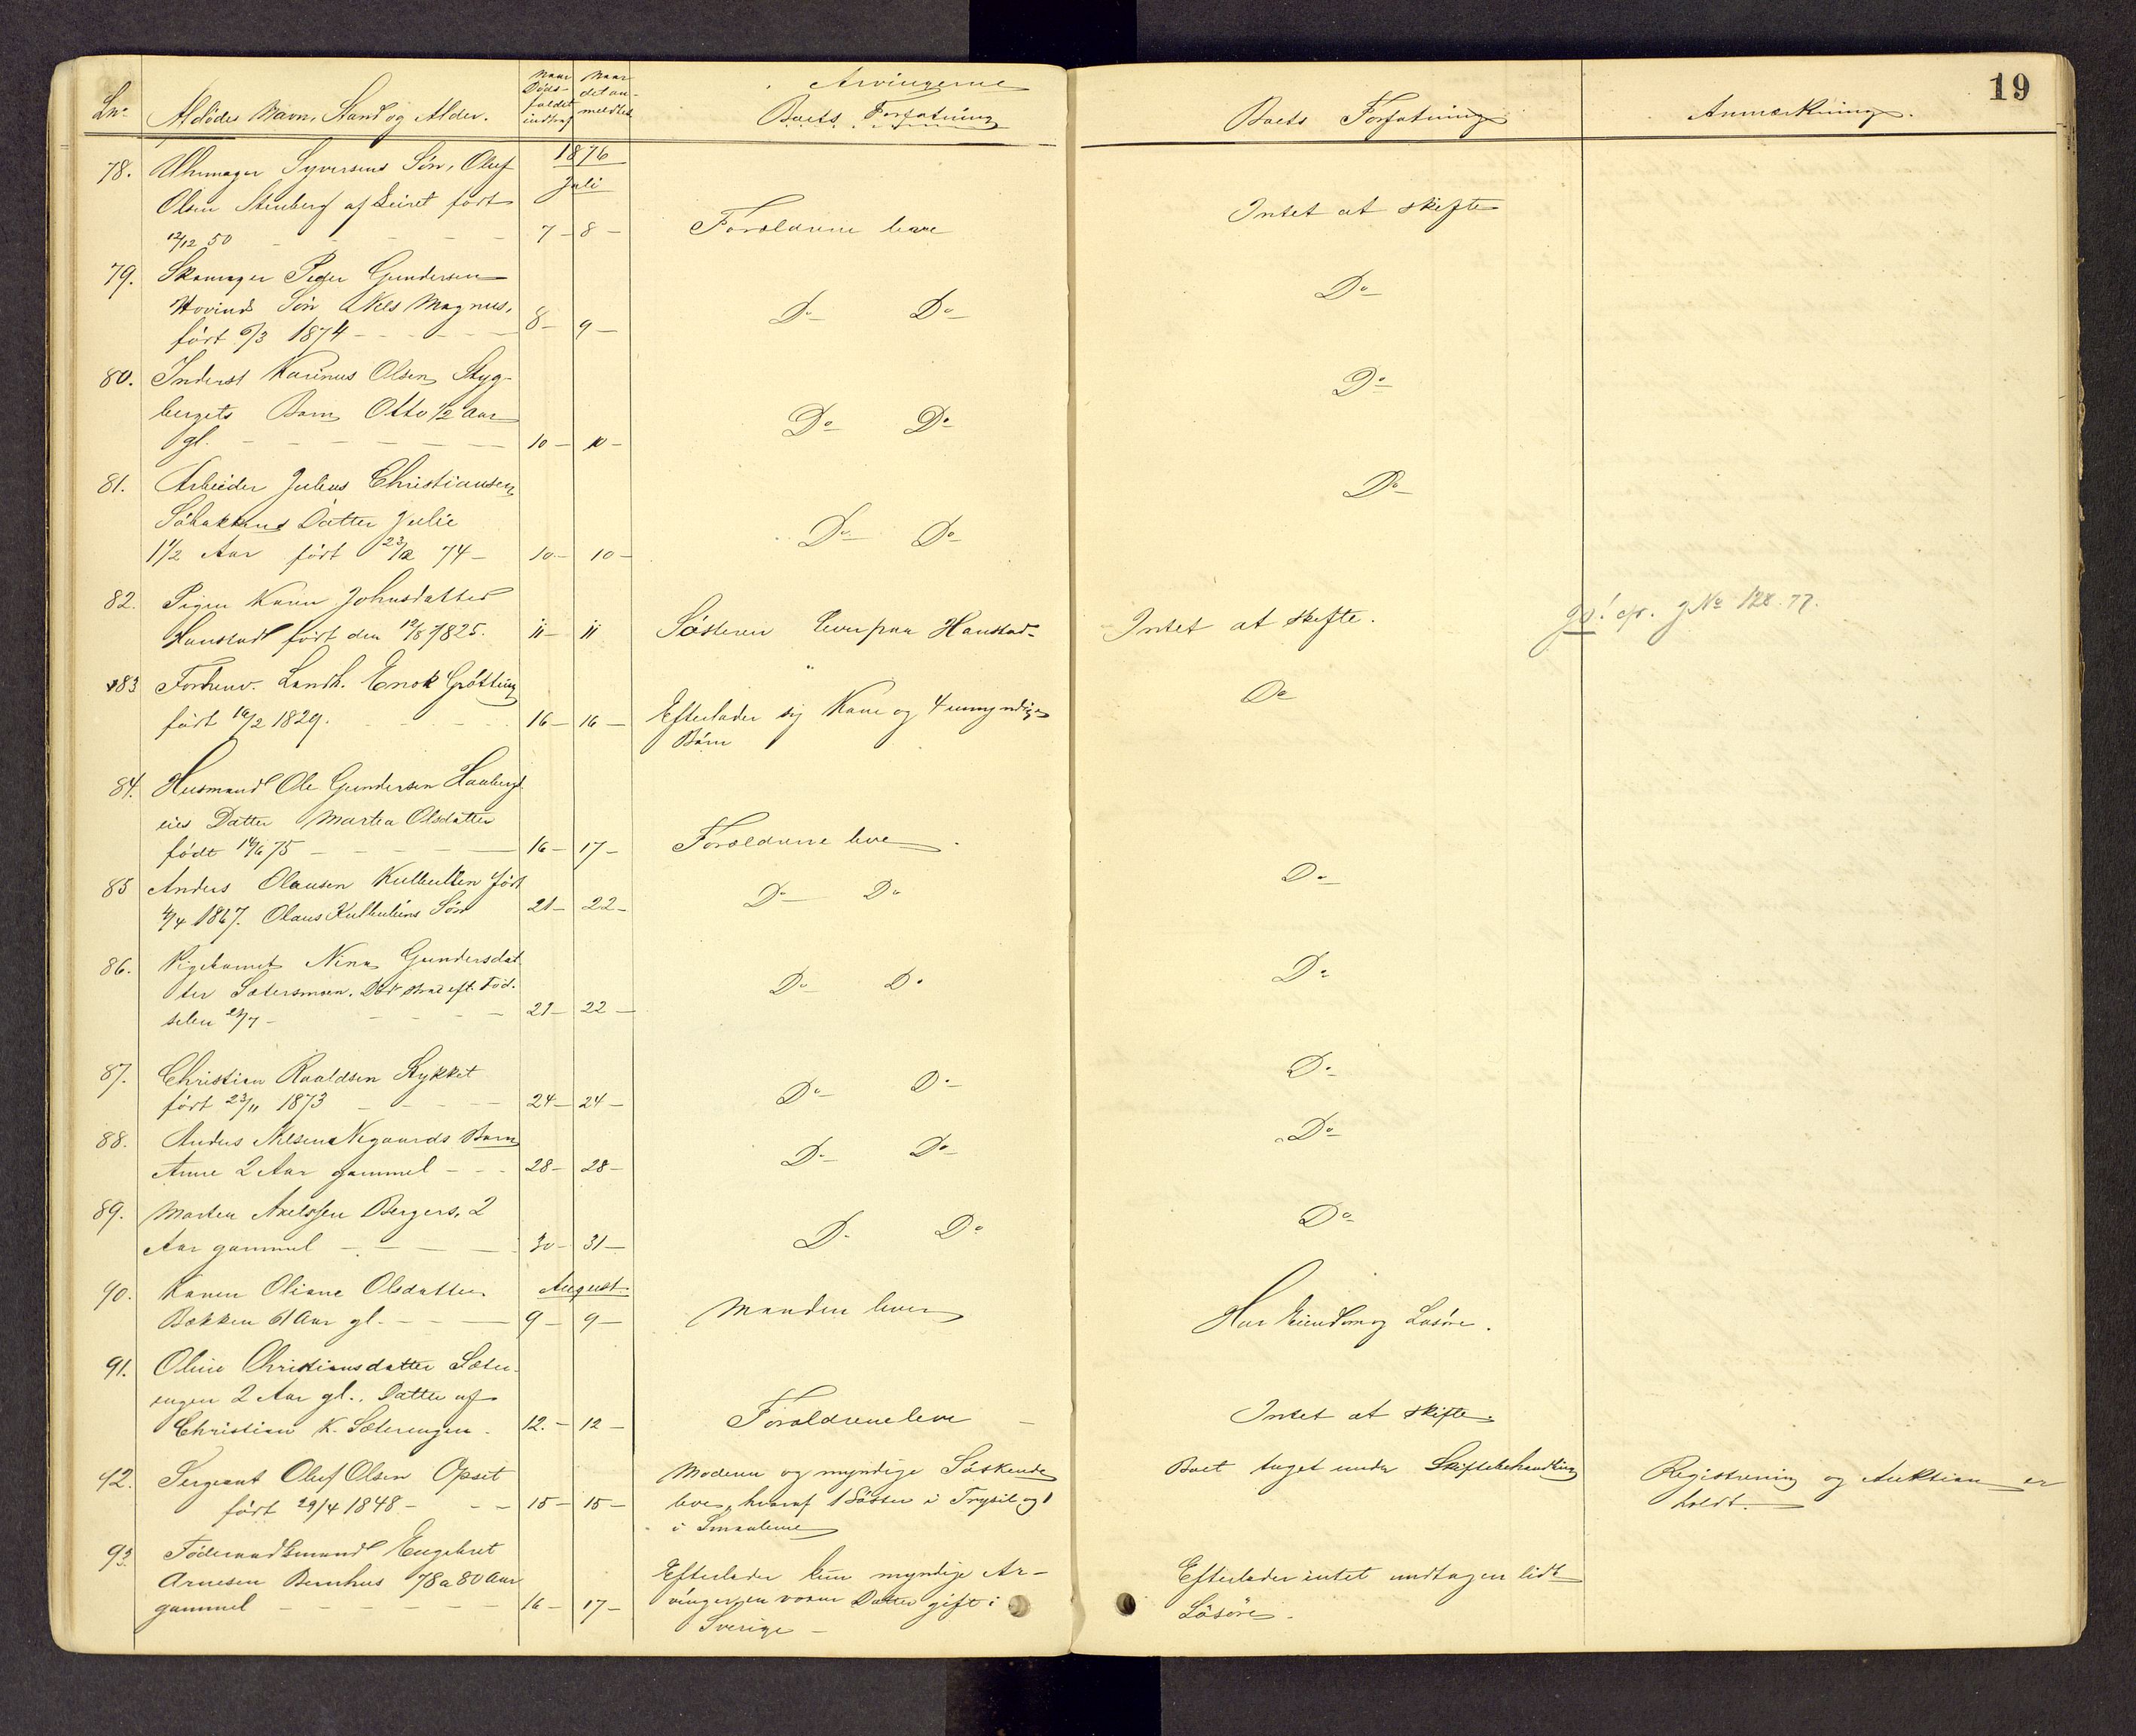 19
Lnr. Afdødes Navn, Stand og Alder. Naar Dødsfaldet indtraf Naar det anmeldtes Arvingerne Boets Forfatning Boets Forfatning Anmærkning.
1876
Juli
78. Uhrmager Syversens Søn, Oluf
Olsen Stenberg af Leiret født
12/12 50 7 – 8 – Forældrene leve Intet at skifte
79. Skomager Peder Gundersen
Hovinds Søn Nels Magnus,
født 6/3 1874 8 – 9 – Do Do Do
80. Inderst Karinus Olsen Styg-
bergets Barn Otto 1/2 Aar
gl. 10 – 10 – Do Do Do
81. Arbeider Julius Christiansen
Datter Julie
1 1/2 Aar født 23/12 74 – 10 – 10 – Do Do Do
82. Pigen Karen Johnsdatter
Hanstad født den 12/8 1825. 11 – 11 Søsteren lever paa Hanstad – Intet at skifte. Jo! cfr. J No 128.77.
83 Forhenv. Landh. Enok Grøtting
født 16/2 1829. 16 – 16 – Efterlader sig Kone og 4 umyndige
Børn Do
84. Husmand Ole Gundersen Haaberg
eies Datter Martea Olsdatter
født 14/6 75 16 – 17 – Forældrene leve.
85 Anders Olausen Kulbulien født
4/4 1867. Olaus Kulbuliens Søn 21 – 22 – Do Do Do
86. Pigebarnet Nina Gundersdat
ter Sætersmoen. Død strax eft. Fød-
selen 21/7 – 21 – 22 – Do Do Do
87. Christian Roaldsen Stykket
født 23/11 1873 24 – 24 – Do Do Do
88. Anders Nilsen Nygaards Barn
Anne 2 Aar gammel 28 – 28 – Do Do Do
89. Marten Axelsen Bergers, 2
Aar gammel 30 – 31 – Do Do Do
August
90. Karen Oliane Olsdatter
Bakken 61 Aar gl. 9 – 9 – Manden lever Har Eiendom og Løsøre.
91. Oline Christiansdatter Sæter-
engen 2 Aar gl., Datter af
Christian K. Sæterengen. 12. – 12 – Forældrene leve Intet at skifte.
92. Sergeant Oluf Olsen Opset
født 29/4 1848 – 15 – 15 – Moderen og myndige Søskende
leve, hvoraf 1 Søster i Trysil og 1
i Smaalene Boet taget under Skiftebehandling Registrering og Auktion er
holdt.
93. Føderaadsmand Engebret
Arnesen Bernhus 78 a 80 Aar
gammel 16 – 17 – Efterlader kun myndige Ar-
vinger, en voxen Datter gift i
Sverige – Efterlader intet undtagen lidt
Løsøre.